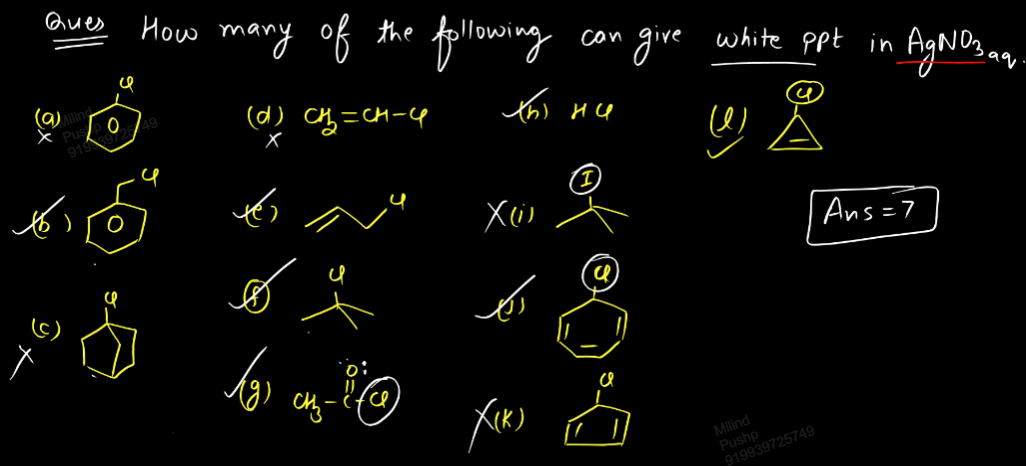 Ques How many of the following can give white ppt in AgNO3 aq.
(a) Cl
(b) Cl
(c) Cl
(d) CH2=CH-Cl
(e) Cl
(f) Cl
(g) CH3-C-Cl
O:
(h) HCl
(i) I
(j) Cl
(K) Cl
(l) Cl
Ans = 7
Milind
Pushp
919939725749
Milind
Pushp
919939725749